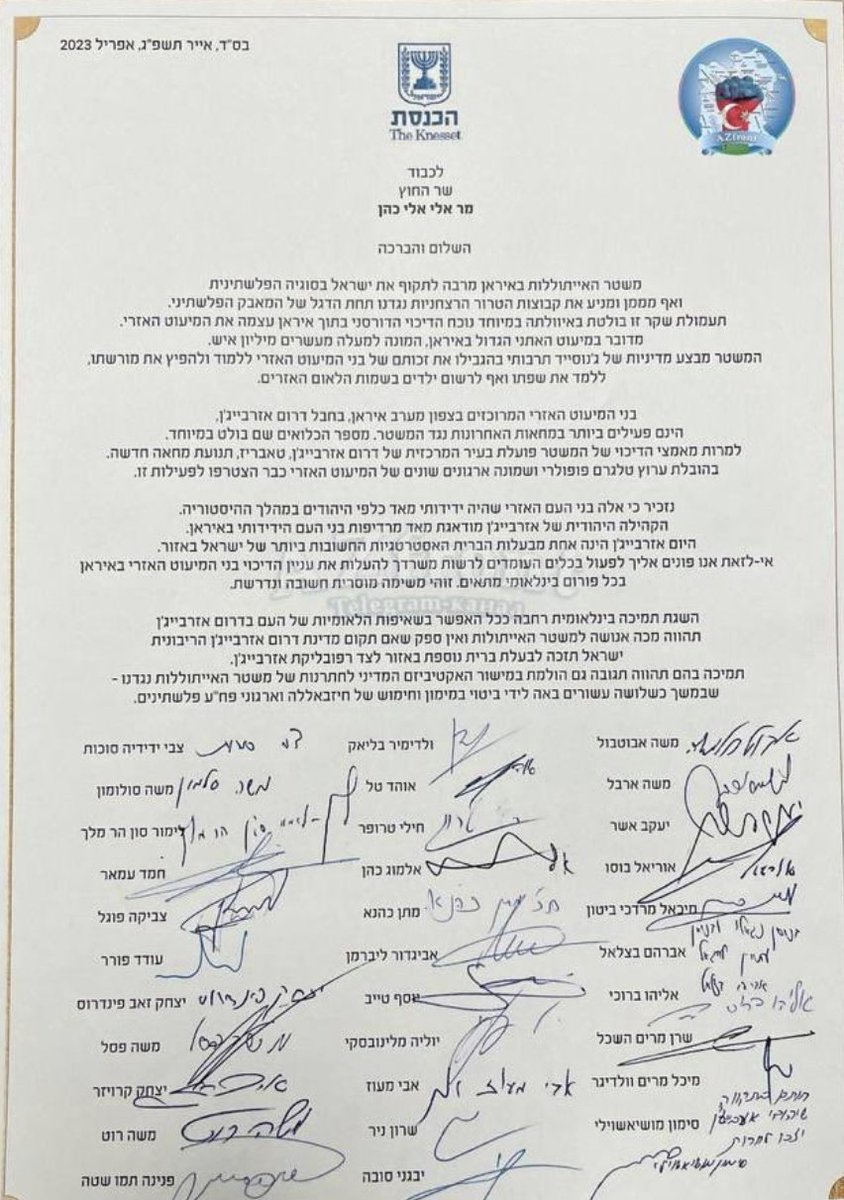 בס"ד, אייר תשפ"ג, אפריל 2023
הכנסת
The Knesset
לכבוד
שר החוץ
מר אלי אלי כהן
השלום והברכה
משטר האייתוללות באיראן מרבה לתקוף את ישראל בסוגיה הפלשתינית
ואף מממן ומניע את קבוצות הטרור הרצחניות נגדנו תחת הדגל של המאבק הפלשתיני.
תעמולת שקר זו בולטת באיוולתה במיוחד נוכח הדיכוי הדורסני בתוך איראן עצמה את המיעוט האזרי.
מדובר במיעוט האתני הגדול באיראן, המונה למעלה מעשרים מיליון איש.
המשטר מבצע מדיניות של ג'נוסייד תרבותי בהגבילו את זכותם של בני המיעוט האזרי ללמוד ולהפיץ את מורשתו,
ללמד את שפתו ואף לרשום ילדים בשמות הלאום האזרים.
בני המיעוט האזרי המרוכזים בצפון מערב איראן, בחבל דרום אזרבייג'ן,
הינם פעילים ביותר במחאות האחרונות נגד המשטר. מספר הכלואים שם בולט במיוחד.
למרות מאמצי הדיכוי של המשטר פועלת בעיר המרכזית של דרום אזרבייג'ן, טאבריז, תנועת מחאה חדשה.
בהובלת ערוץ טלגרם פופולרי ושמונה ארגונים שונים של המיעוט האזרי כבר הצטרפו לפעילות זו.
נזכיר כי אלה בני העם האזרי שהיה ידידותי מאד כלפי היהודים במהלך ההיסטוריה.
הקהילה היהודית של אזרבייג'ן מודאגת מאד מרדיפות בני העם הידידותי באיראן.
היום אזרבייג'ן הינה אחת מבעלות הברית האסטרטגיות החשובות ביותר של ישראל באזור.
אי-לזאת אנו פונים אליך לפעול בכלים העומדים לרשות משרדך להעלות את עניין הדיכוי בני המיעוט האזרי באיראן
בכל פורום בינלאומי מתאים. זוהי משימה מוסרית חשובה ונדרשת.
השגת תמיכה בינלאומית רחבה ככל האפשר בשאיפות הלאומיות של העם בדרום אזרבייג'ן
תהווה מכה אנושה למשטר האייתולות ואין ספק שאם תקום מדינת דרום אזרבייג'ן הריבונית
ישראל תזכה לבעלת ברית נוספת באזור לצד רפובליקת אזרבייג'ן.
תמיכה בהם תהווה תגובה גם הולמת במישור האקטיביזם המדיני לחתרנות של משטר האייתוללות נגדנו -
שבמשך כשלושה עשורים באה לידי ביטוי במימון וחימוש של חיזבאללה וארגוני פח"ע פלשתינים.
משה אבוטבול
משה ארבל
יעקב אשר
אוריאל בוסו
מיכאל מרדכי ביטון
אברהם בצלאל
אליהו ברוכי
שרן מרים השכל
מיכל מרים וולדיגר
סימון מושיאשוילי
ולדימיר בליאק
אוהד טל
חילי טרופר
אלמוג כהן
מתן כהנא
אביגדור ליברמן
יוסף טייב
יוליה מלינובסקי
אבי מעוז
אבי מעוז
שרון ניר
יבגני סובה
צבי ידידיה סוכות
משה סולומון
לימור סון הר מלך
חמד עמאר
צביקה פוגל
עודד פורר
יצחק זאב פינדרוס
משה פסל
יצחק קרויזר
משה רוט
פנינה תמו שטה